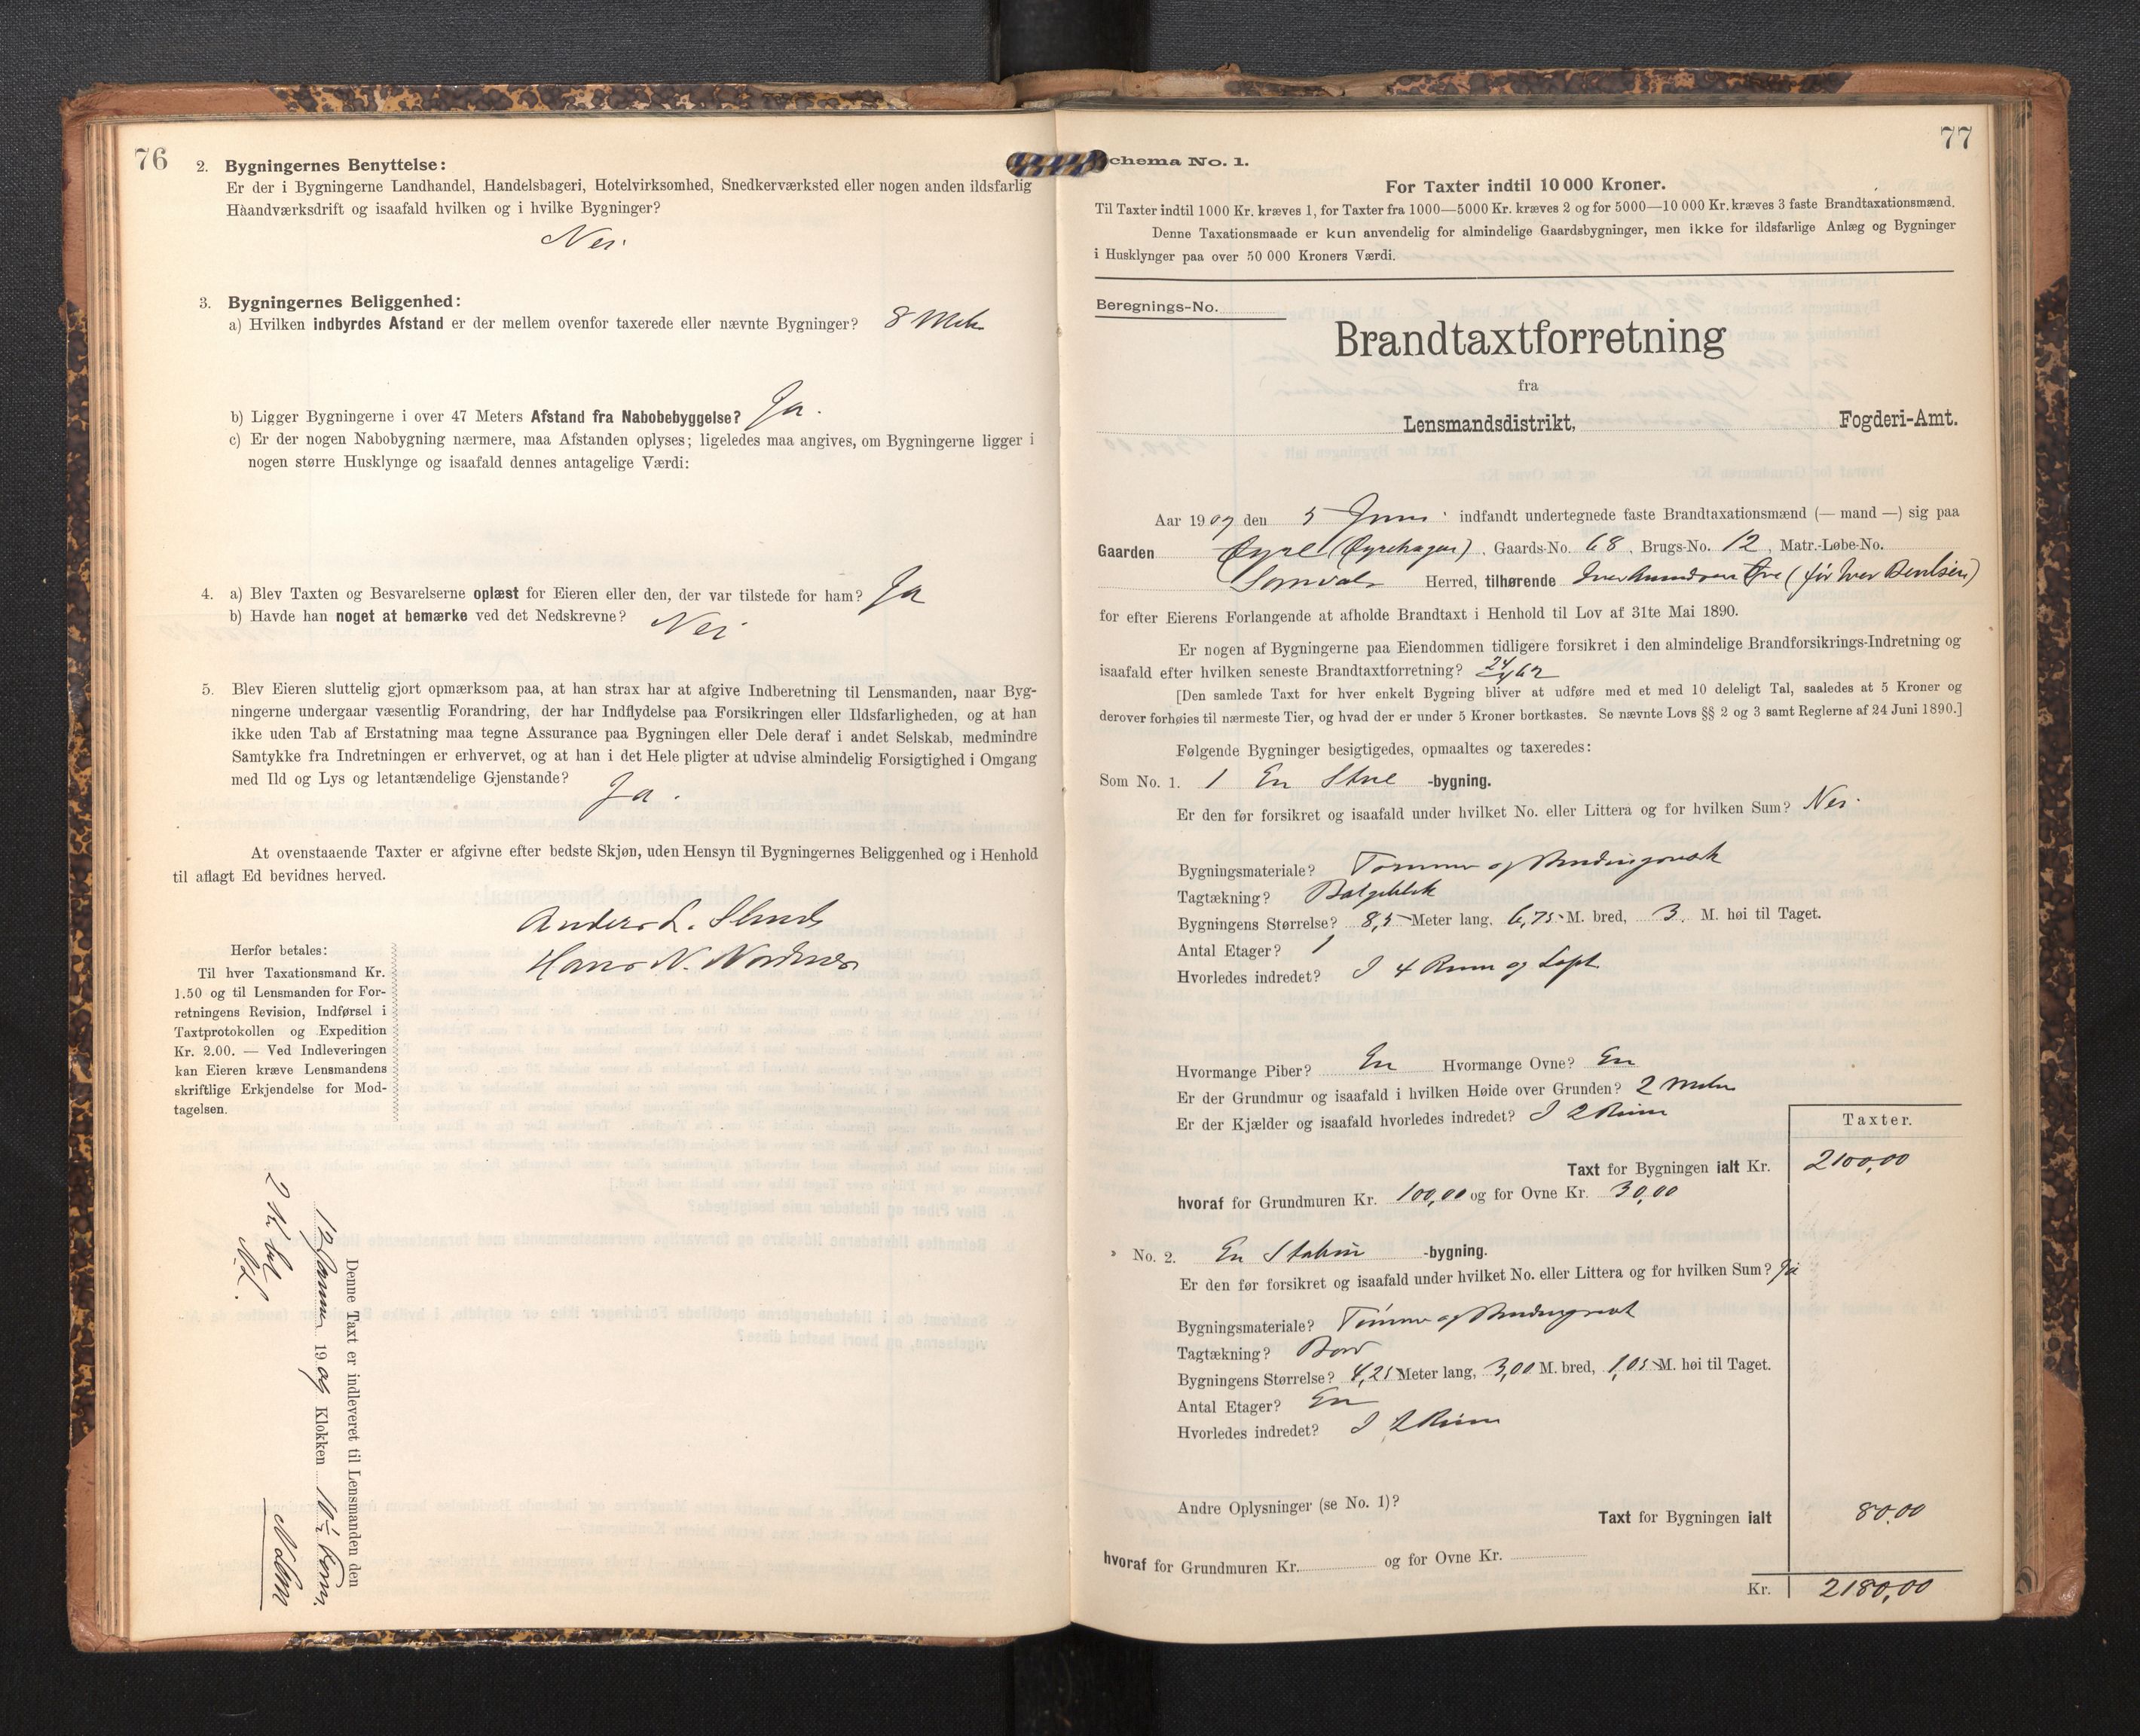 76
2. Bygningernes Benyttelse:
Er der i Bygningerne Landhandel, Handelsbageri, Hotelvirksomhed, Snedkerværksted eller nogen anden ildsfarlig
Haandværksdrift og isaafald hvilken og i hvilke Bygninger?
Nei.
3. Bygningernes Beliggenhed:
a) Hvilken indbyrdes Afstand er der mellem ovenfor taxerede eller nævnte Bygninger? 8 Meter
b) Ligger Bygningerne i over 47 Meters Afstand fra Nabobebyggelse? Ja.
c) Er der nogen Nabobygning nærmere, maa Afstanden oplyses; ligeledes maa angives, om Bygningerne ligger i
nogen større Husklynge og isaafald dennes antagelige Værdi:
4. a) Blev Taxten og Besvarelserne oplæst for Eieren eller den, der var tilstede for ham? Ja
b) Havde han noget at bemærke ved det Nedskrevne? Nei
5. Blev Eieren sluttelig gjort opmærksom paa, at han strax har at afgive Indberetning til Lensmanden, naar Byg-
ningerne undergaar væsentlig Forandring, der har Indflydelse paa Forsikringen eller Ildsfarligheden, og at han
ikke uden Tab af Erstatning maa tegne Assurance paa Bygningen eller Dele deraf i andet Selskab, medmindre
Samtykke fra Indretningen er erhvervet, og at han i det Hele pligter at udvise almindelig Forsigtighed i Omgang
med Ild og Lys og letantændelige Gjenstande?
Ja.
At ovenstaaende Taxter er afgivne efter bedste Skjøn, uden Hensyn til Bygningernes Beliggenhed og i Henhold
til aflagt Ed bevidnes herved.
Anders L.
Hans N.
Herfor betales:
Til hver Taxationsmand Kr.
1.50 og til Lensmanden for For-
retningens Revision, Indførsel i
Taxtprotokollen og Expedition
Kr. 2.00. — Ved Indleveringen
kan Eieren kræve Lensmandens
skriftlige Erkjendelse for Mod-
tagelsen.
Denne Taxt er indleveret til Lensmanden den
12 1909 Klokken 10½ Form.
2 Kr bet
77
Schema No. 1.
For Taxter indtil 10 000 Kroner.
Til Taxter indtil 1000 Kr. kræves 1, for Taxter fra 1000—5000 Kr. kræves 2 og for 5000—10 000 Kr. kræves 3 faste Brandtaxationsmænd.
Denne Taxationsmaade er kun anvendelig for almindelige Gaardsbygninger, men ikke for ildsfarlige Anlæg og Bygninger
i Husklynger paa over 50 000 Kroners Værdi.
Beregnings-No.
Brandtaxtforretning
fra
Lensmandsdistrikt, Fogderi-Amt.
Aar 1909 den 5 Juni indfandt undertegnede faste Brandtaxationsmænd (— mand —) sig paa
Gaarden Øyre (Øyrehagen), Gaards-No. 68, Brugs-No. 12, Matr.-Løbe-No.
Herred, tilhørende Iver Øre (før Iver Bentsen)
for efter Eierens Forlangende at afholde Brandtaxt i Henhold til Lov af 31te Mai 1890.
Er nogen af Bygningerne paa Eiendommen tidligere forsikret i den almindelige Brandforsikrings-Indretning og
isaafald efter hvilken seneste Brandtaxtforretning?
[Den samlede Taxt for hver enkelt Bygning bliver at udføre med et med 10 deleligt Tal, saaledes at 5 Kroner og
derover forhøies til nærmeste Tier, og hvad der er under 5 Kroner bortkastes. Se nævnte Lovs §§ 2 og 3 samt Reglerne af 24 Juni 1890.]
Følgende Bygninger besigtigedes, opmaaltes og taxeredes:
Som No. 1. 1 En Stue -bygning.
Er den før forsikret og isaafald under hvilket No. eller Littera og for hvilken Sum? Nei.
Bygningsmateriale? Tømmer og Bindingsværk
Tagtækning? Bølgeblik
Bygningens Størrelse? 8,5 Meter lang, 6,75 M. bred, 3. M. høi til Taget.
Antal Etager? 1
Hvorledes indredet? I 4 Rum og Loft
Hvormange Piber? En Hvormange Ovne? En
Er der Grundmur og isaafald i hvilken Høide over Grunden? 2 Meter
Er der Kjælder og isaafald hvorledes indredet? I 2 Rum
Taxter.
Taxt for Bygningen ialt Kr. 2100,00
hvoraf for Grundmuren Kr. 100,00 og for Ovne Kr. 30,00
" No. 2. En Stabur -bygning.
Er den før forsikret og isaafald under hvilket No. eller Littera og for hvilken Sum? Ja
Bygningsmateriale? Tømmer og Bindingsværk
Tagtækning? Bord
Bygningens Størrelse? 4,25 Meter lang, 3,00 M. bred, 1,05 M. høi til Taget.
Antal Etager? En
Hvorledes indredet? I 2 Rum
Andre Oplysninger (se No. 1)?
Taxt for Bygningen ialt 80.00
hvoraf for Grundmuren Kr. og for Ovne Kr.
Kr. 2180,00